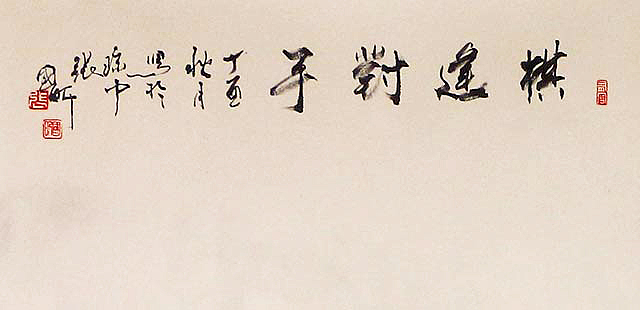 棋逢對手
丁酉
秋月
寫於
琼中
張
國昕